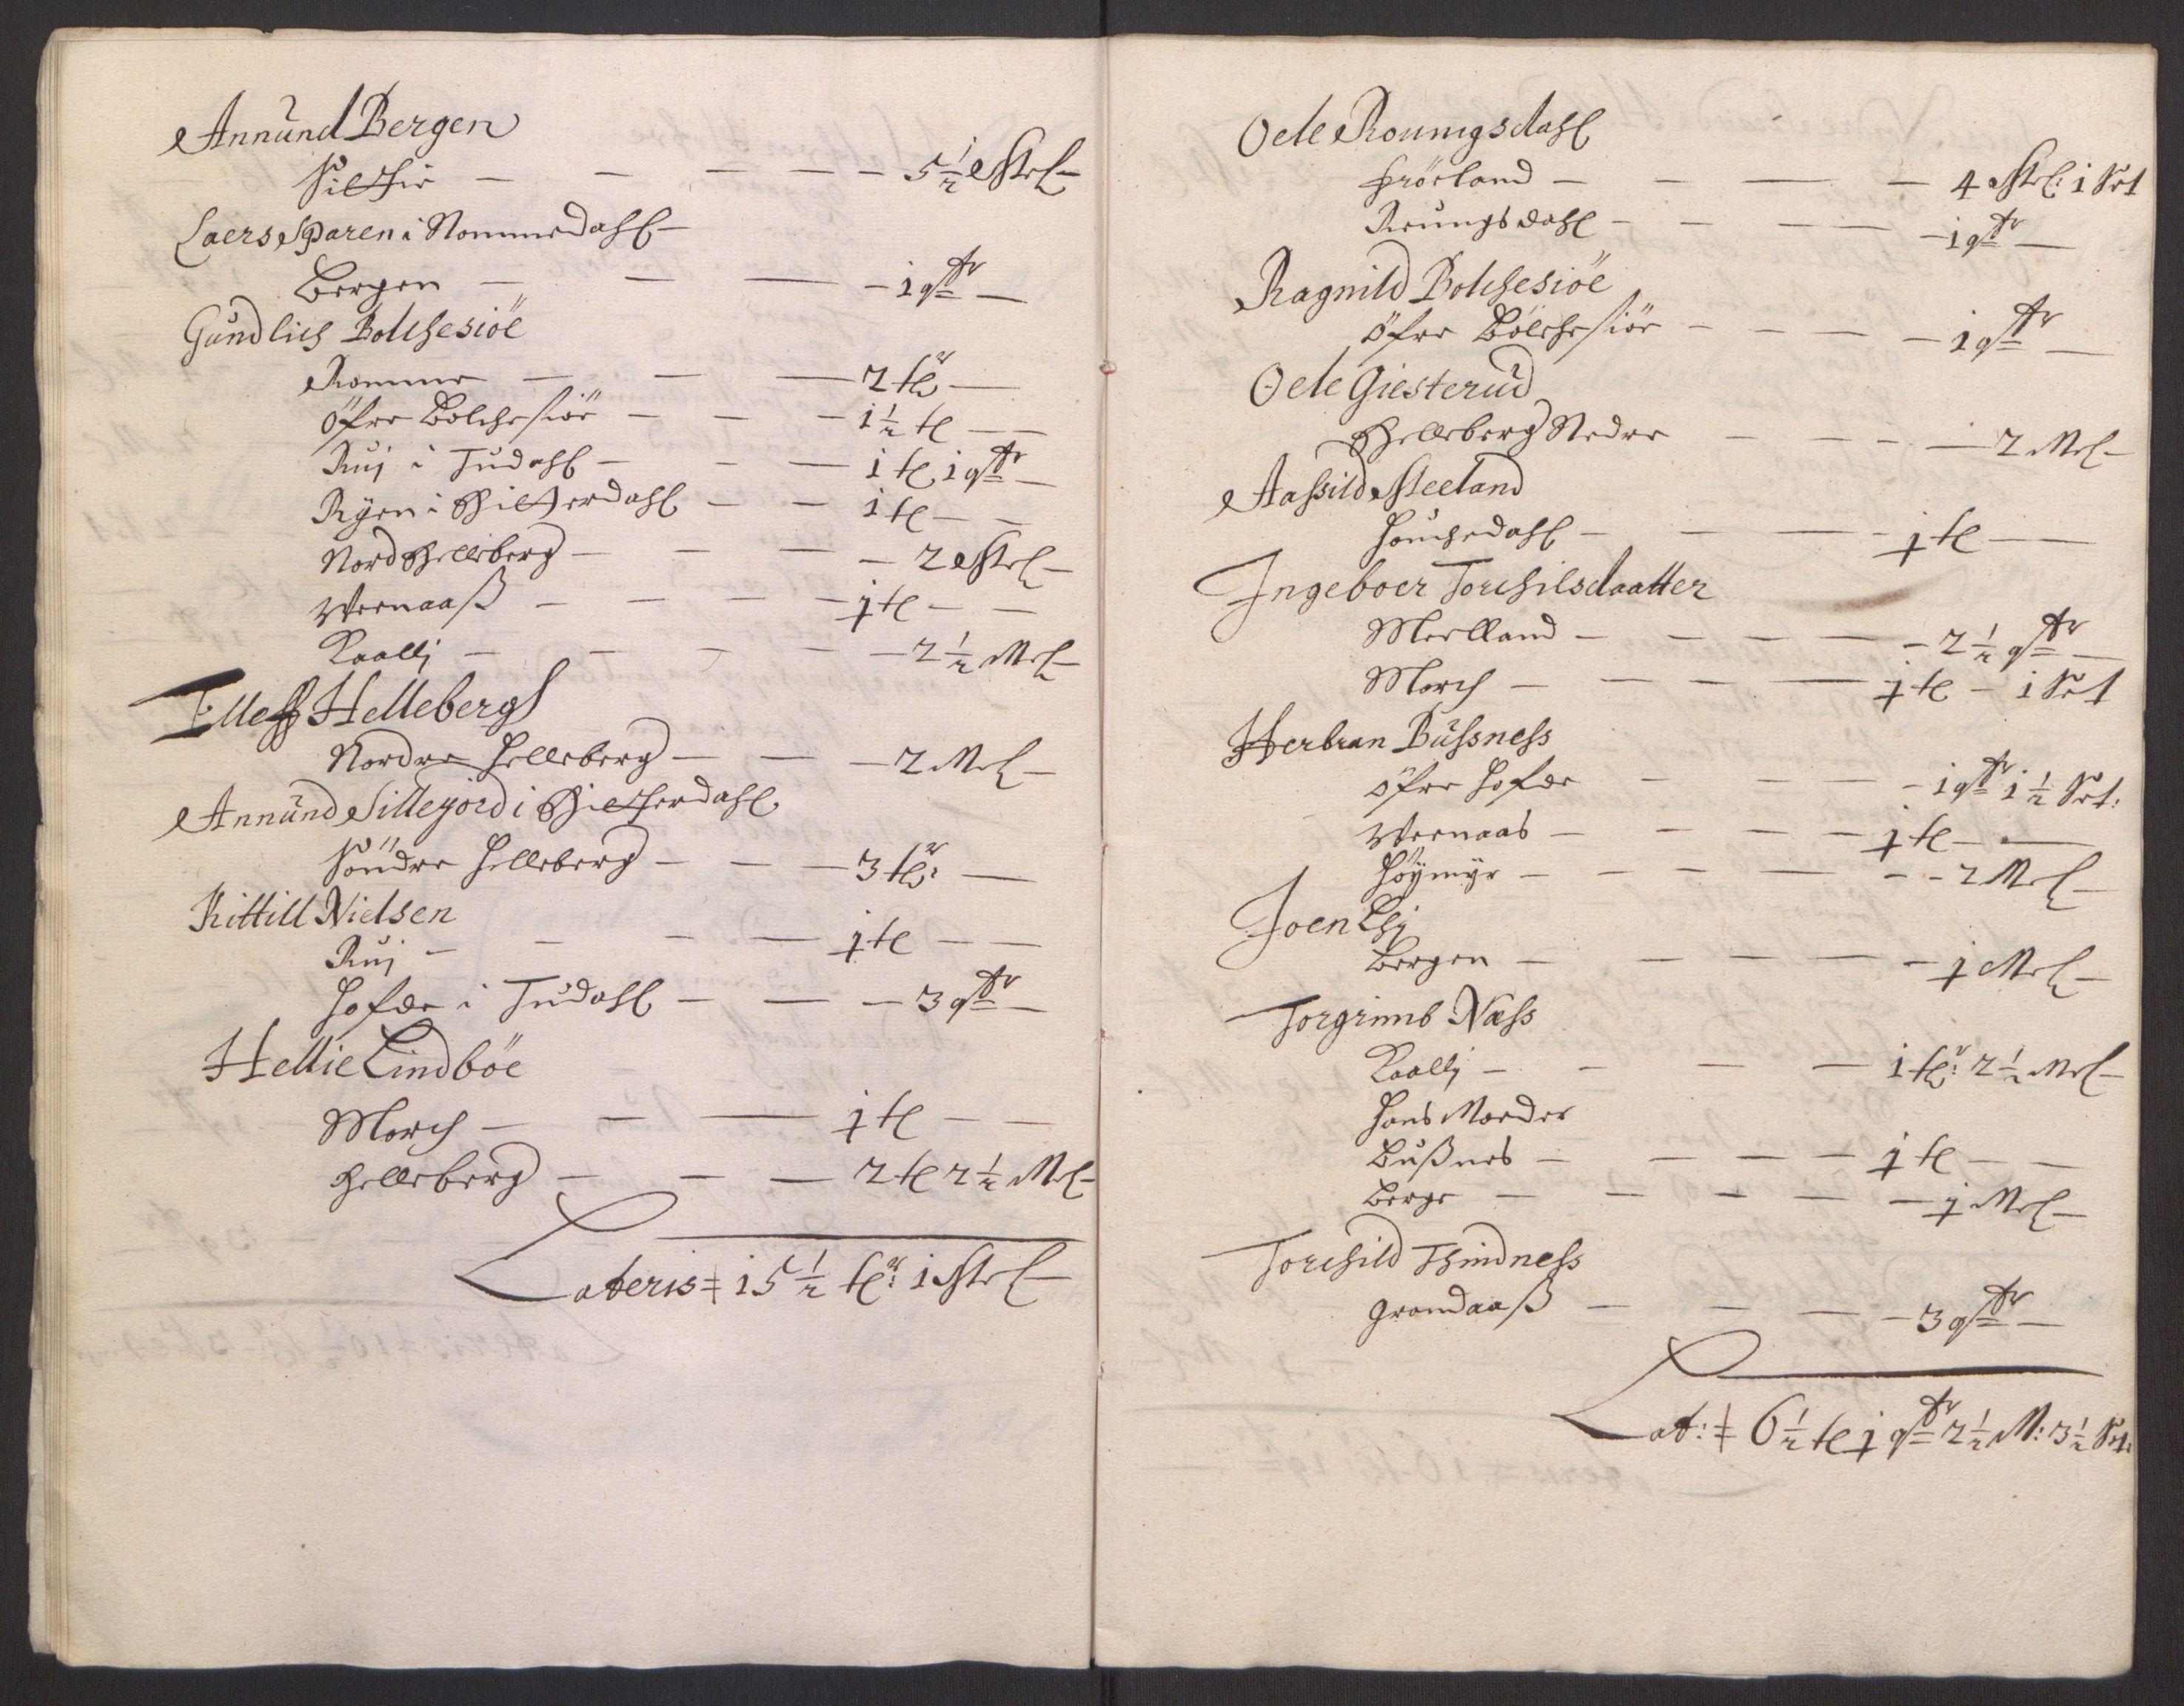 Annund Bergen
Siltvir — — — — 5 1/2 Mel —
Laers Sparen i Nommedahl —
Bergen — — — 1 qtr —
Gundlich Bolchesiöe
Romme — — — 2 tlr —
öfre Bolchesiöe — — — 1 1/2 tl — —
Ruj i Tudahl — — — 1 tl 1 qtr —
Ryen i Hitterdahl — — 1 tl — —
Nord Helleberg — — — 2 Mel —
Wernaaß — — — — 1 tl — —
Kaallj — — — — 2 1/2 Mel —
Elleff Hellebergh
Nordre Helleberg — — — 2 Mel —
Annund Sillejord i Hitterdahl
Söndre Helleberg — — — 3 tlr: —
Kittill Nielsen
Ruj — — — — 1 tl — —
Hofde i Tudahl — — — 3 qtr —
Hellie Lindböe
March — — — 1 tl — —
Helleberg — — — 2 tl 2 1/2 Mel —
Lateris = 15 1/2 tlr: 1 Mel —
Oele Roningsdahl
Fröeland — — — — 4 Mel: 1 Set
Rungsdahl — — — — 1 qtr —
Ragnild Bolchesiöe
öfre Bölchesiöe — — — — 1 qtr —
Oele Giesterud
Helleberg Nedre — — — — 2 Mel —
Aaßild Meeland
Houchedahl — — — — 1 tl — —
Ingeboer Torchilsdaatter
Merlland — — — — 2 1/2 qtr —
March — — — — 1 tl — 1 Set
Herbran Bussness
öfre Hofde — — — — 1 qtr 1 1/2 Set:
Wernaas — — — — 1 tl — —
Höymyr — — — — — 2 Mel —
Joen Lhj
Bergen — — — — — 1 Mel —
Torgrimb Næss
Kaallj — — — — 1 tlr: 2 1/2 Mel —
Hans Mæder
Bußnes — — — — 1 tl — —
Berge — — — — — 1 Mel —
Torchild Thindness
Grandaaß — — — — 3 qtr —
Lat: = 6 1/2 tl 1 qtr 2 1/2 M: 3 1/2 Set: